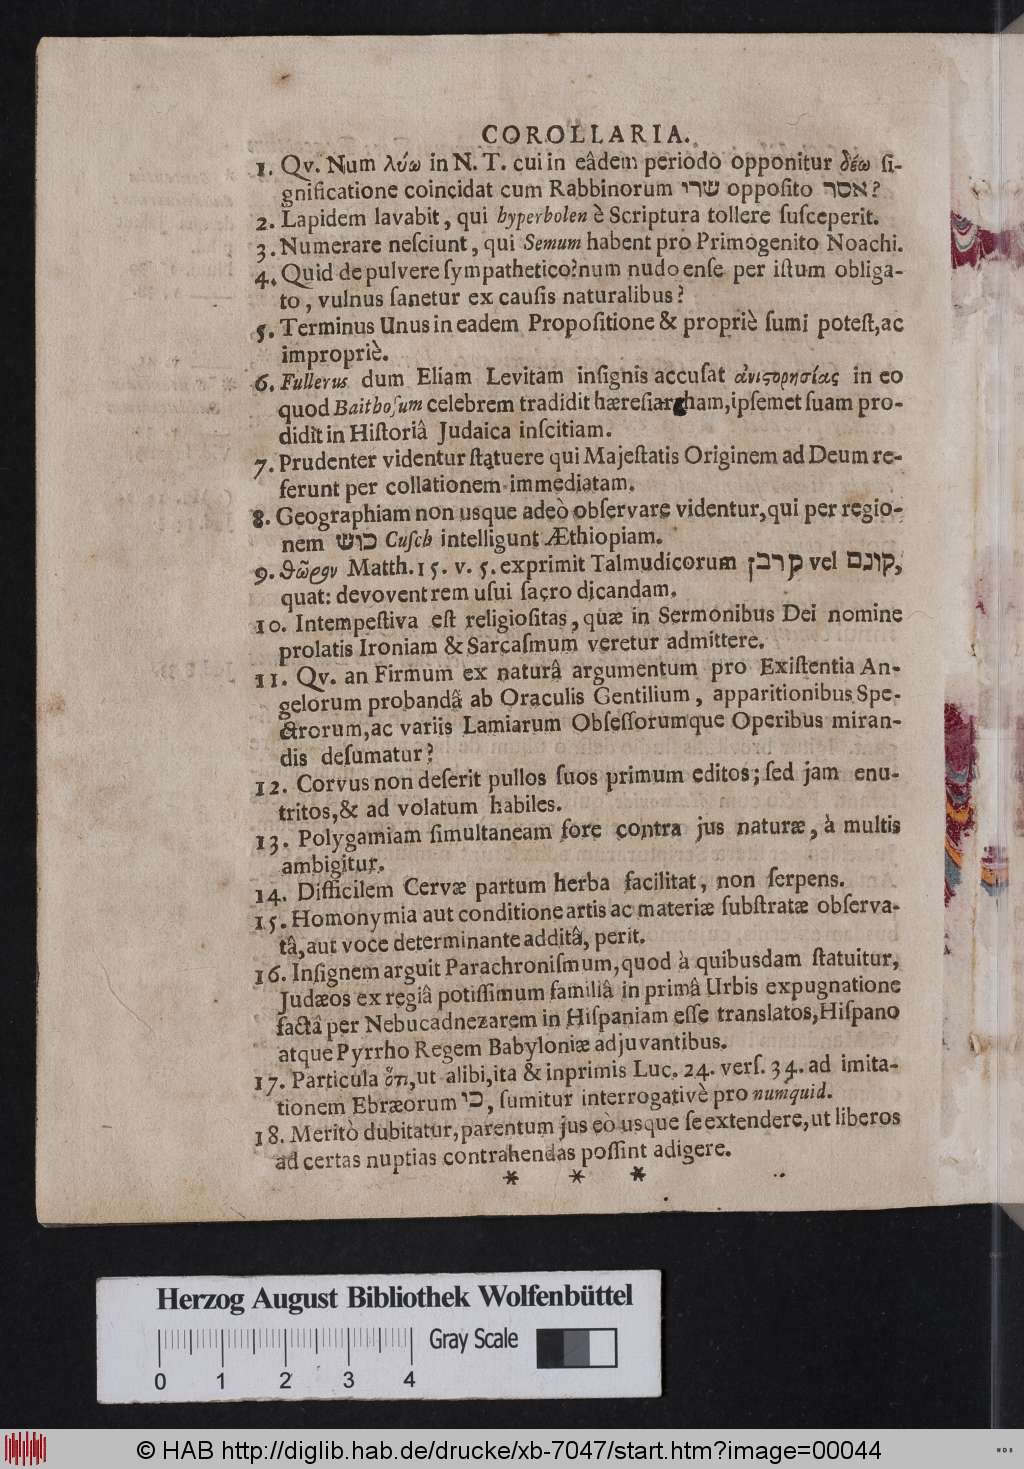 COROLLARIA.
1. Qv. Num λύω in N. T. cui in eâdem periodo opponitur δέω ſi-
gnificatione coincidat cum Rabbinorum שרי oppoſito אסר?
2. Lapidem lavabit, qui hyperbolen è Scriptura tollere ſuſceperit.
3. Numerare neſciunt, qui Semum habent pro Primogenito Noachi.
4. Quid de pulvere ſympathetico? num nudo enſe per iſtum obliga-
to, vulnus ſanetur ex cauſis naturalibus?
5. Terminus Unus in eadem Propoſitione & propriè ſumi poteſt, ac
impropriè.
6. Fullerus dum Eliam Levitam inſignis accuſat ἀνιςορησίας in eo
quod Baithoſum celebrem tradidit hæreſiarcham, ipſemet ſuam pro-
didit in Hiſtoriâ Judaica inſcitiam.
7. Prudenter videntur ſtatuere qui Majeſtatis Originem ad Deum re-
ferunt per collationem immediatam.
8. Geographiam non usque adeò obſervare videntur, qui per regio-
nem כוש Cuſch intelligunt Æthiopiam.
9. δῶρον Matth. 15. v. 5. exprimit Talmudicorum קרבן vel קונם,
quat: devovent rem uſui ſacro dicandam.
10. Intempeſtiva eſt religioſitas, quæ in Sermonibus Dei nomine
prolatis Ironiam & Sarcaſmum veretur admittere.
11. Qv. an Firmum ex naturâ argumentum pro Exiſtentia An-
gelorum probandâ ab Oraculis Gentilium, apparitionibus Spe-
ctrorum, ac variis Lamiarum Obſeſſorumque Operibus miran-
dis deſumatur?
12. Corvus non deſerit pullos ſuos primum editos; ſed jam enu-
tritos, & ad volatum habiles.
13. Polygamiam ſimultaneam fore contra jus naturæ, à multis
ambigitur.
14. Difficilem Cervæ partum herba facilitat, non ſerpens.
15. Homonymia aut conditione artis ac materiæ ſubſtratæ obſerva-
tâ, aut voce determinante additâ, perit.
16. Inſignem arguit Parachroniſmum, quod à quibusdam ſtatuitur,
Judæos ex regiâ potiſſimum familiâ in primâ Urbis expugnatione
factâ per Nebucadnezarem in Hiſpaniam eſſe translatos, Hiſpano
atque Pyrrho Regem Babyloniæ adjuvantibus.
17. Particula ὅτι, ut alibi, ita & inprimis Luc. 24. verſ. 34. ad imita-
tionem Ebræorum כי, ſumitur interrogativè pro numquid.
18. Meritò dubitatur, parentum jus eò usque ſe extendere, ut liberos
ad certas nuptias contrahendas poſſint adigere.
* * *
Herzog August Bibliothek Wolfenbüttel
Gray Scale
0 1 2 3 4
© HAB http://diglib.hab.de/drucke/xb-7047/start.htm?image=00044